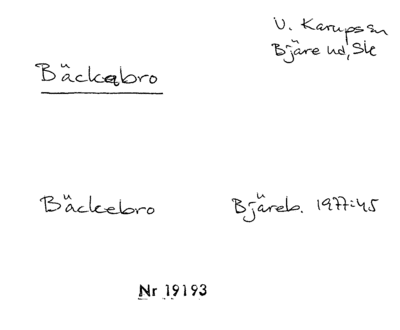 V. Karups sn
Bjäre hd, Sk
Bäckabro
Bäckebro Bjäreb. 1977:45
Nr 19193